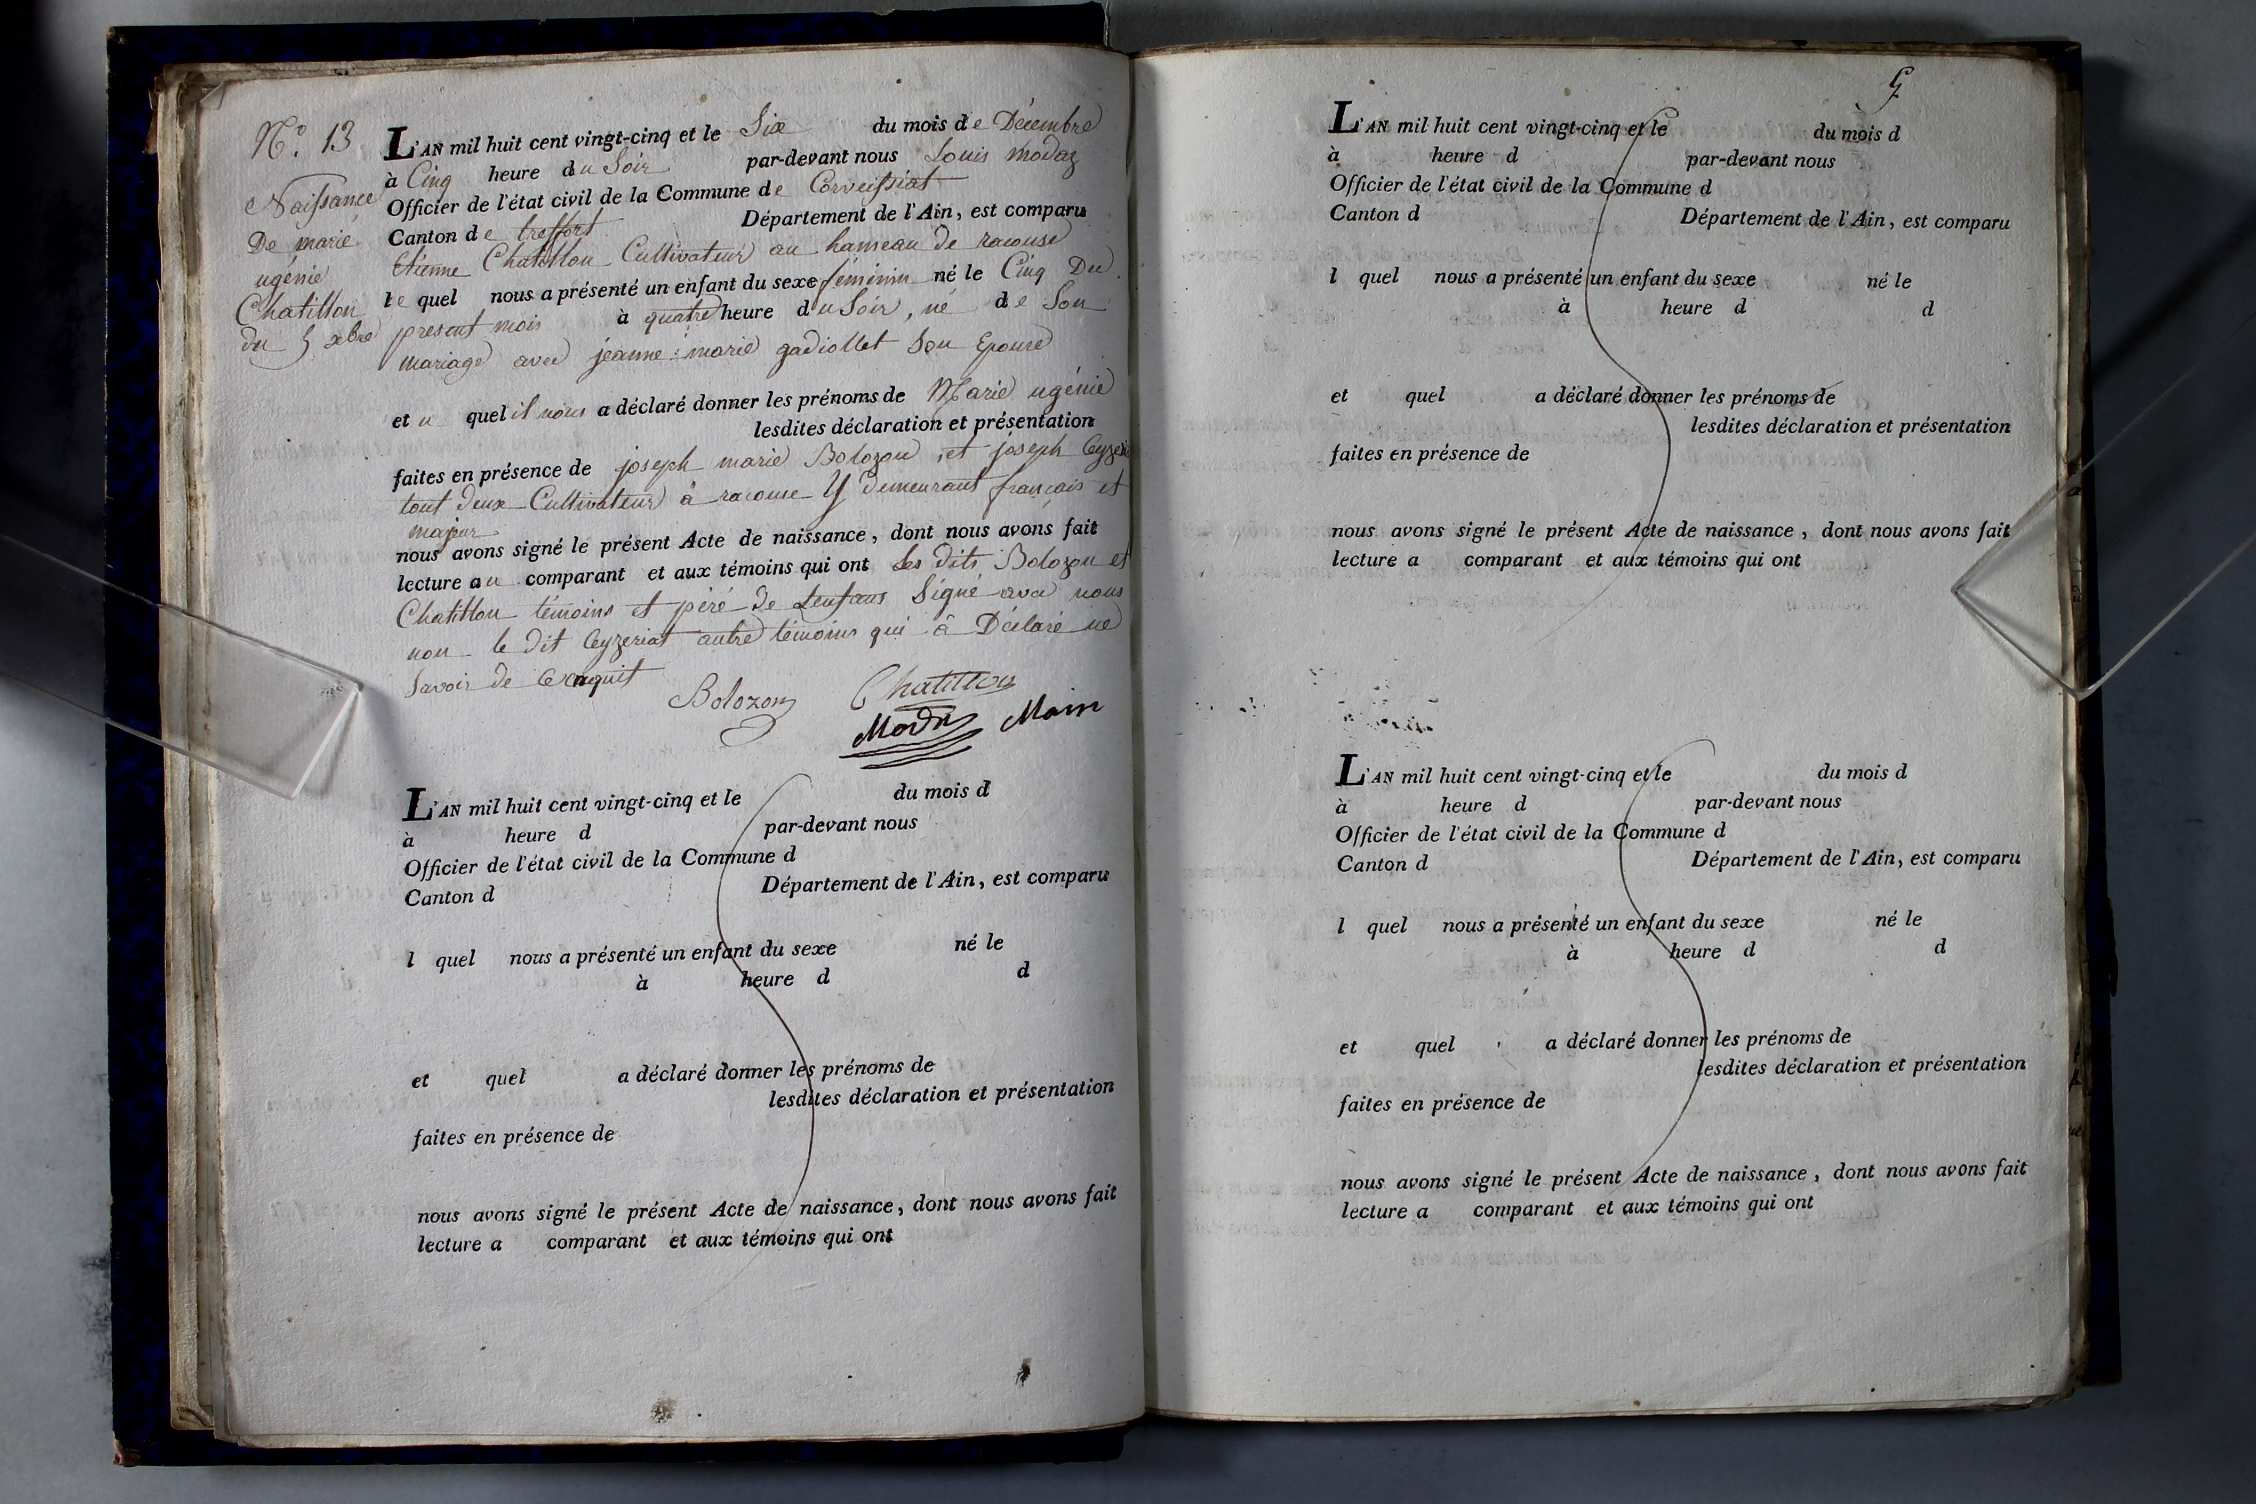 N.º 13
Naissance
De marie
ugénie
Chatillon
du 5 xbre
L'AN mil huit cent vingt-cinq et le Six du mois de Décembre
à Cinq heure du Soir par-devant nous Louis modaz
Officier de l'état civil de la Commune de Corveissiat
Canton de treffort Département de l'Ain, est comparu
Etienne Chatillon Cultivateur au hameau de racouse
le quel nous a présenté un enfant du sexe féminin né le Cinq Du
present mois à quatre heure du Soir, né de Son
mariage avec jeanne marie gadiollet Son Epouse
et u quel il nous a déclaré donner les prénoms de Marie ugénie
lesdites déclaration et présentation
faites en présence de joseph marie Bolozon, et joseph Ceyzeriat
tout deux Cultivateur à racouse Y demeurant français et
majeur
nous avons signé le présent Acte de naissance, dont nous avons fait
lecture au comparant et aux témoins qui ont Les dits Bolozon et
Chatillon témoins et péré de Lenfans Signé avec nous
non le dit Ceyzeriat autre témoins qui à Déclaré ne
Savoir de ce
Bolozon Chatillon
Main
L'AN mil huit cent vingt-cinq et le du mois d
à heure d par-devant nous
Officier de l'état civil de la Commune d
Canton d Département de l'Ain, est comparu
l quel nous a présenté un enfant du sexe né le
à heure d d
et quel a déclaré donner les prénoms de
lesdites déclaration et présentation
faites en présence de
nous avons signé le présent Acte de naissance, dont nous avons fait
lecture a comparant et aux témoins qui ont
L'AN mil huit cent vingt-cinq et le du mois d
à heure d par-devant nous
Officier de l'état civil de la Commune d
Canton d Département de l'Ain, est comparu
l quel nous a présenté un enfant du sexe né le
à heure d d
et quel a déclaré donner les prénoms de
lesdites déclaration et présentation
faites en présence de
nous avons signé le présent Acte de naissance, dont nous avons fait
lecture a comparant et aux témoins qui ont
L'AN mil huit cent vingt-cinq et le du mois d
à heure d par-devant nous
Officier de l'état civil de la Commune d
Canton d Département de l'Ain, est comparu
l quel nous a présenté un enfant du sexe né le
à heure d d
et quel a déclaré donner les prénoms de
lesdites déclaration et présentation
faites en présence de
nous avons signé le présent Acte de naissance, dont nous avons fait
lecture a comparant et aux témoins qui ont